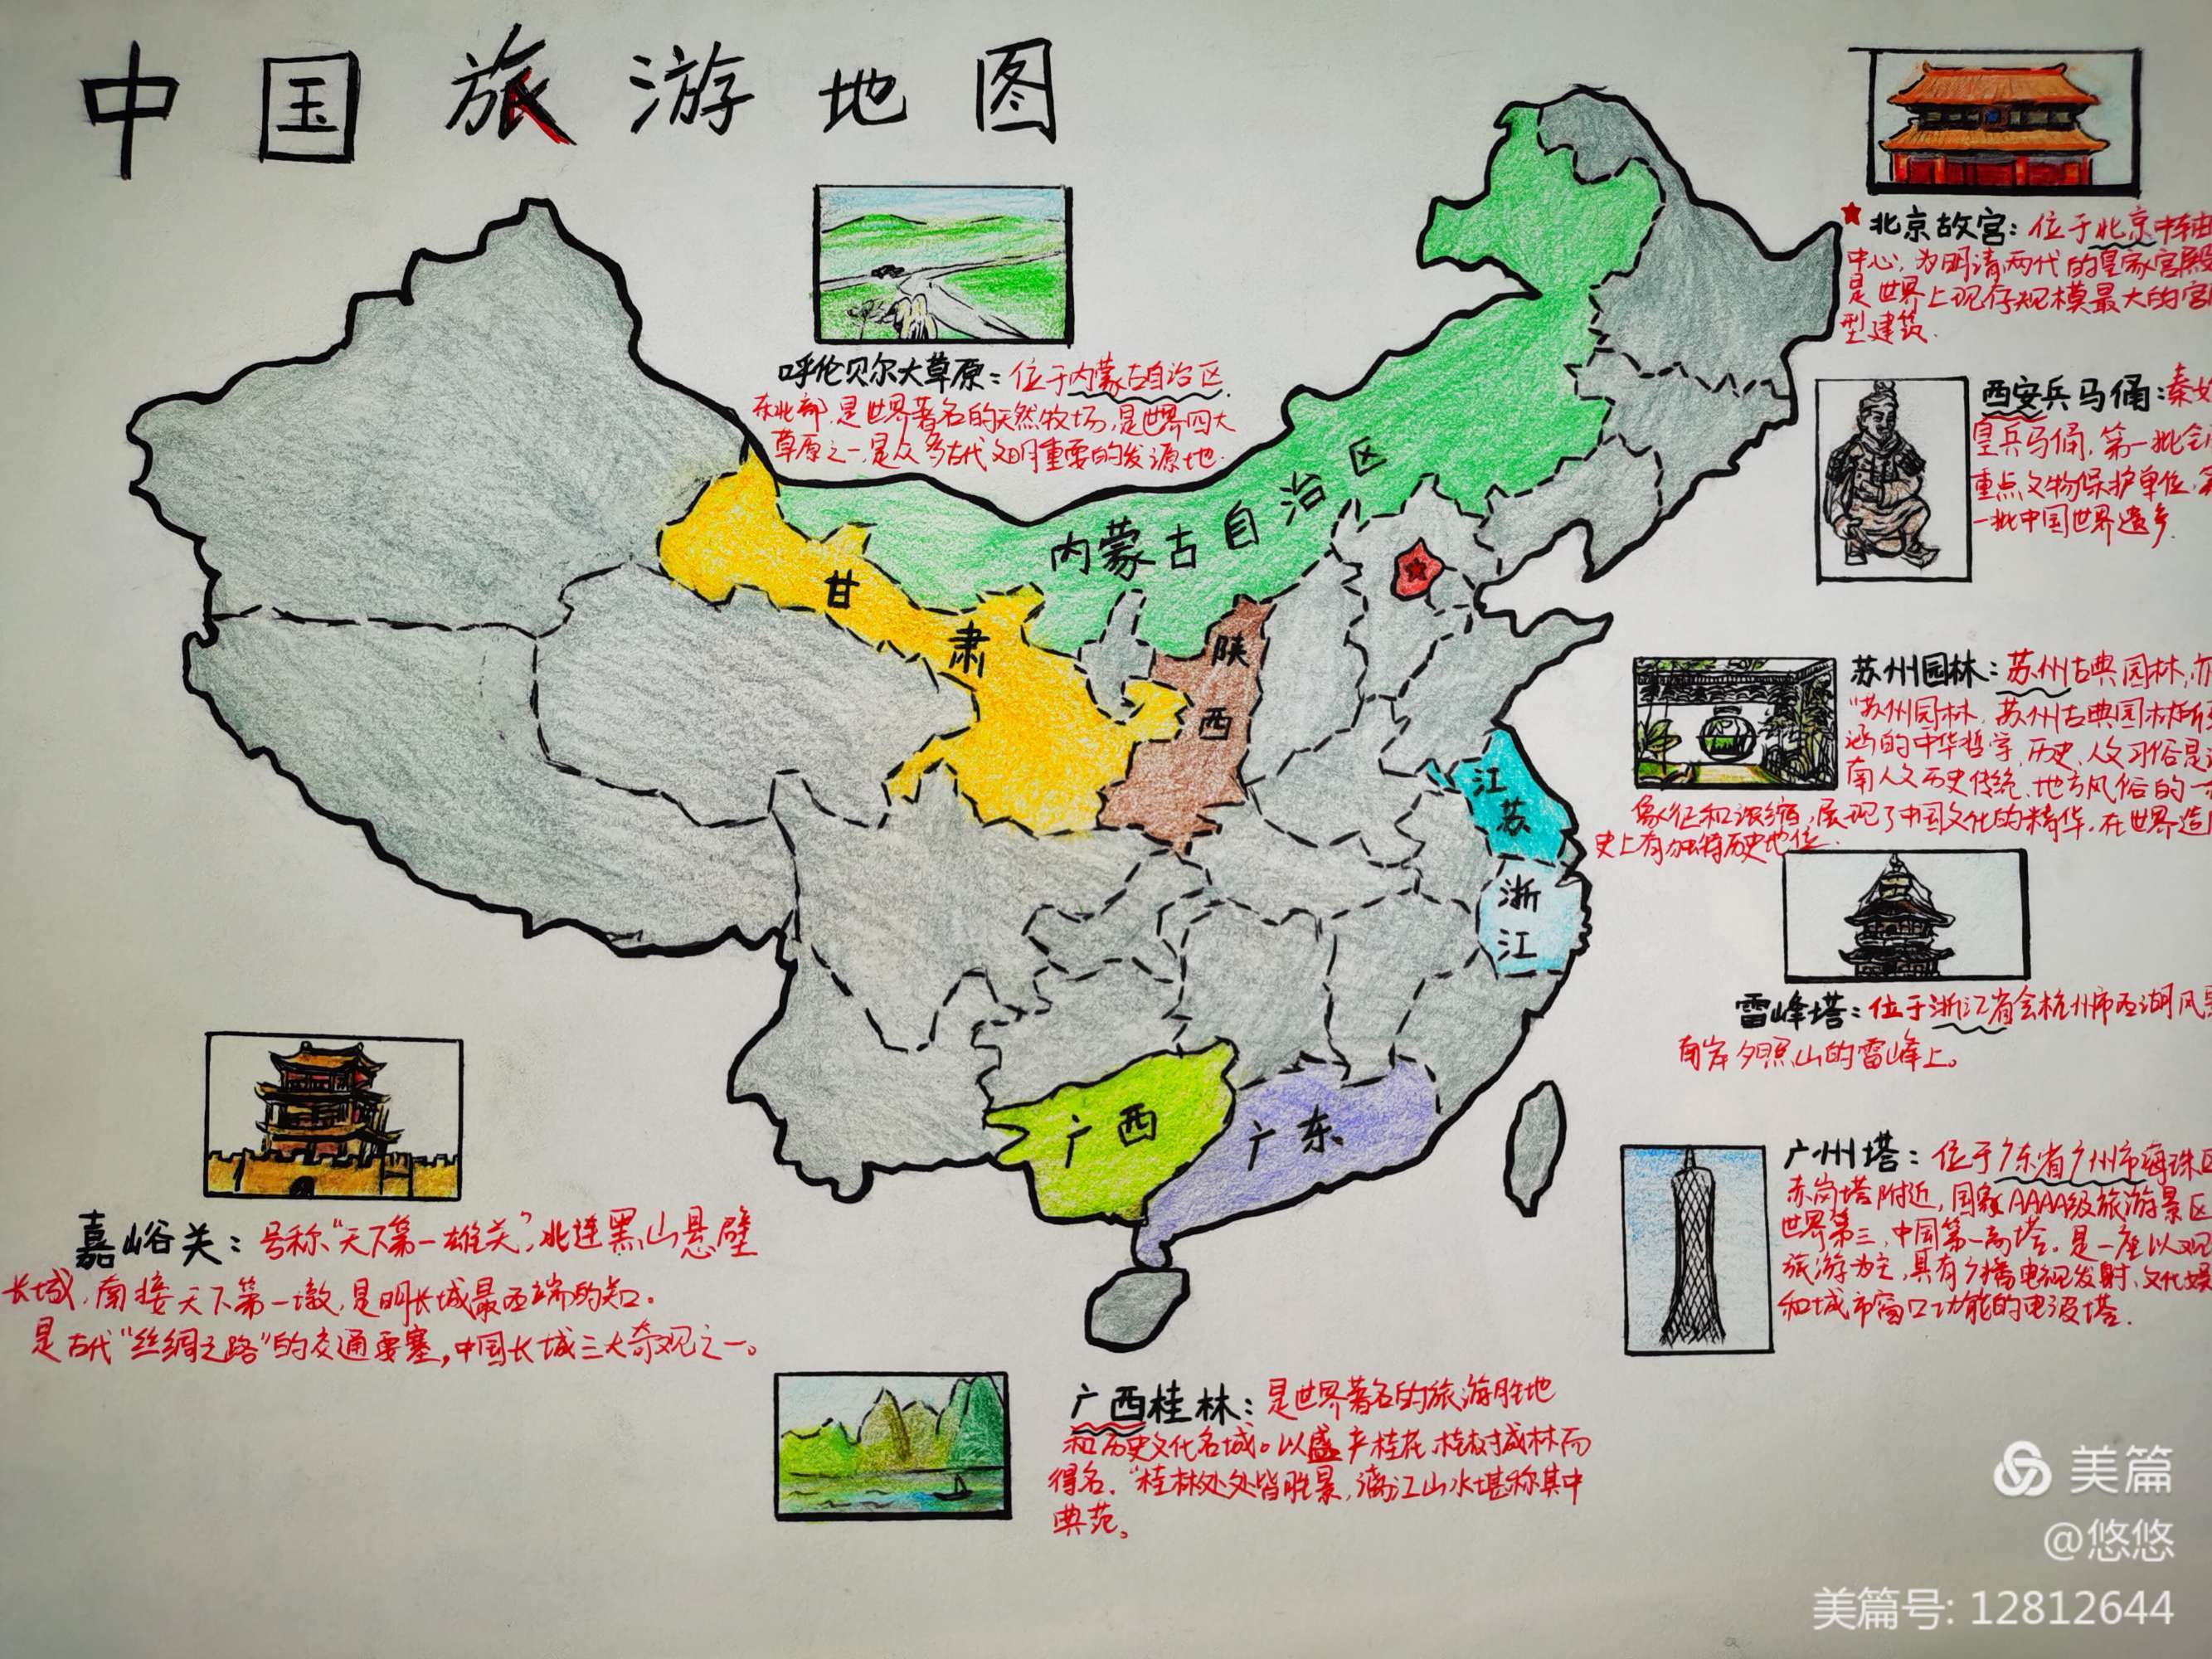 中国旅游地图
呼伦贝尔大草原：位于内蒙古自治区
东北部,是世界著名的天然牧场,是世界四大
草原之一,是众多古代文明重要的发源地.
★北京故宫：位于北京中轴
中心,为明清两代的皇家宫殿
是世界上现存规模最大的宫
型建筑.
西安兵马俑：秦始
皇兵马俑,第一批全
重点文物保护单位,第
一批中国世界遗
苏州园林：苏州古典园林,亦
"苏州园林,苏州古典园林所
涵的中华哲学,历史,人文习俗是
南人文历史传统、地方风俗的一
象征和浓缩,展现了中国文化的精华,在世界造
史上有独特历史地位.
雷峰塔：位于浙江省会杭州市西湖风景
南岸夕照山的雷峰上。
广州塔：位于广东省广州市海珠区
赤岗塔附近,国家AAAA级旅游景区
世界第三,中国第一高塔。是一座以观
旅游为主,具有广播电视发射、文化娱
和城市窗口功能的电波塔.
内蒙古自治区
甘肃
陕西
江苏
浙江
广西
广东
嘉峪关：号称"天下第一雄关",北连黑山悬壁
长城,南接天下第一墩,是明长城最西端的关口。
是古代"丝绸之路"的交通要塞,中国长城三大奇观之一。
广西桂林：是世界著名的旅游胜地
和历史文化名城。以盛产桂花,桂树成林而
得名."桂林处处皆胜景,漓江山水堪称其中
典范。
美篇
@悠悠
美篇号: 12812644